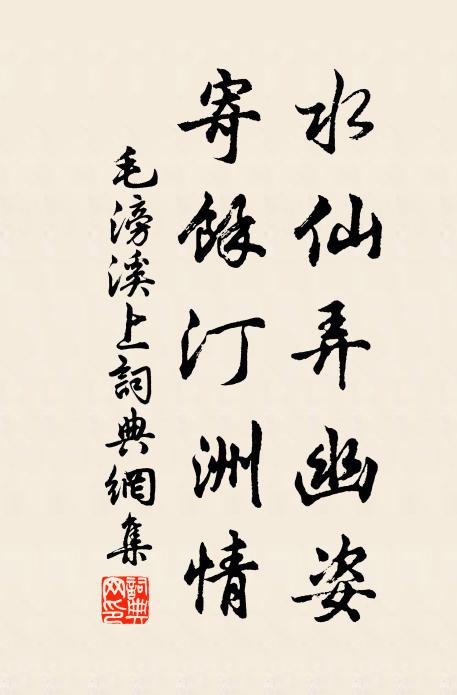 水仙弄幽姿
寄餘汀洲情
毛滂溪上詞典網集
詞典网印